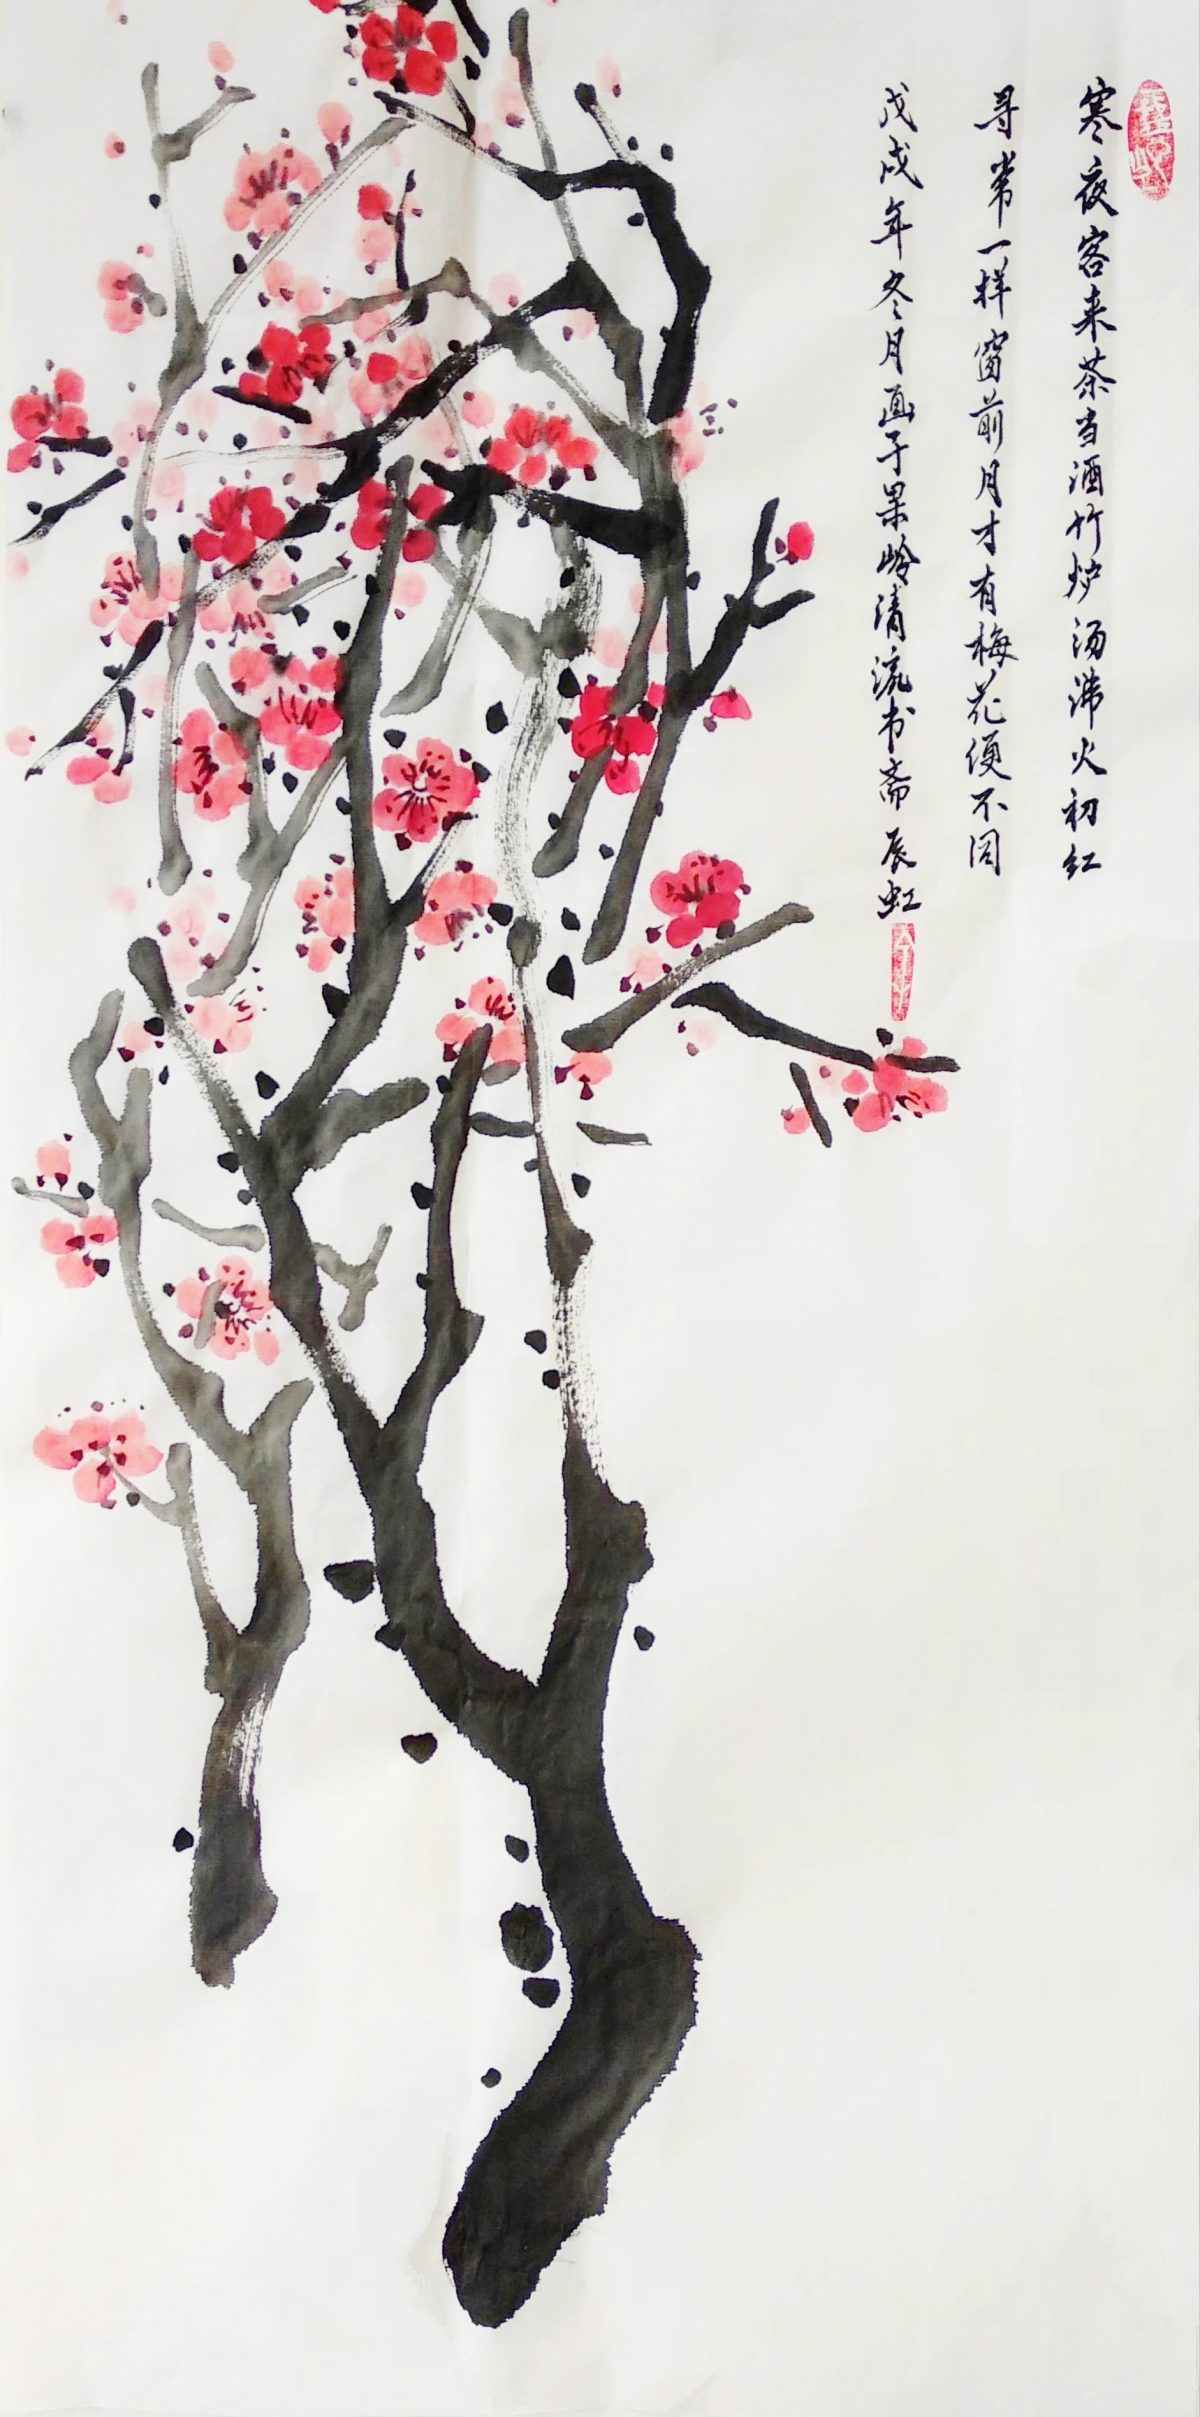 寒夜客来茶当酒竹炉汤沸火初红
寻常一样窗前月才有梅花便不同
戊戌年冬月画于果岭清流书斋辰虹